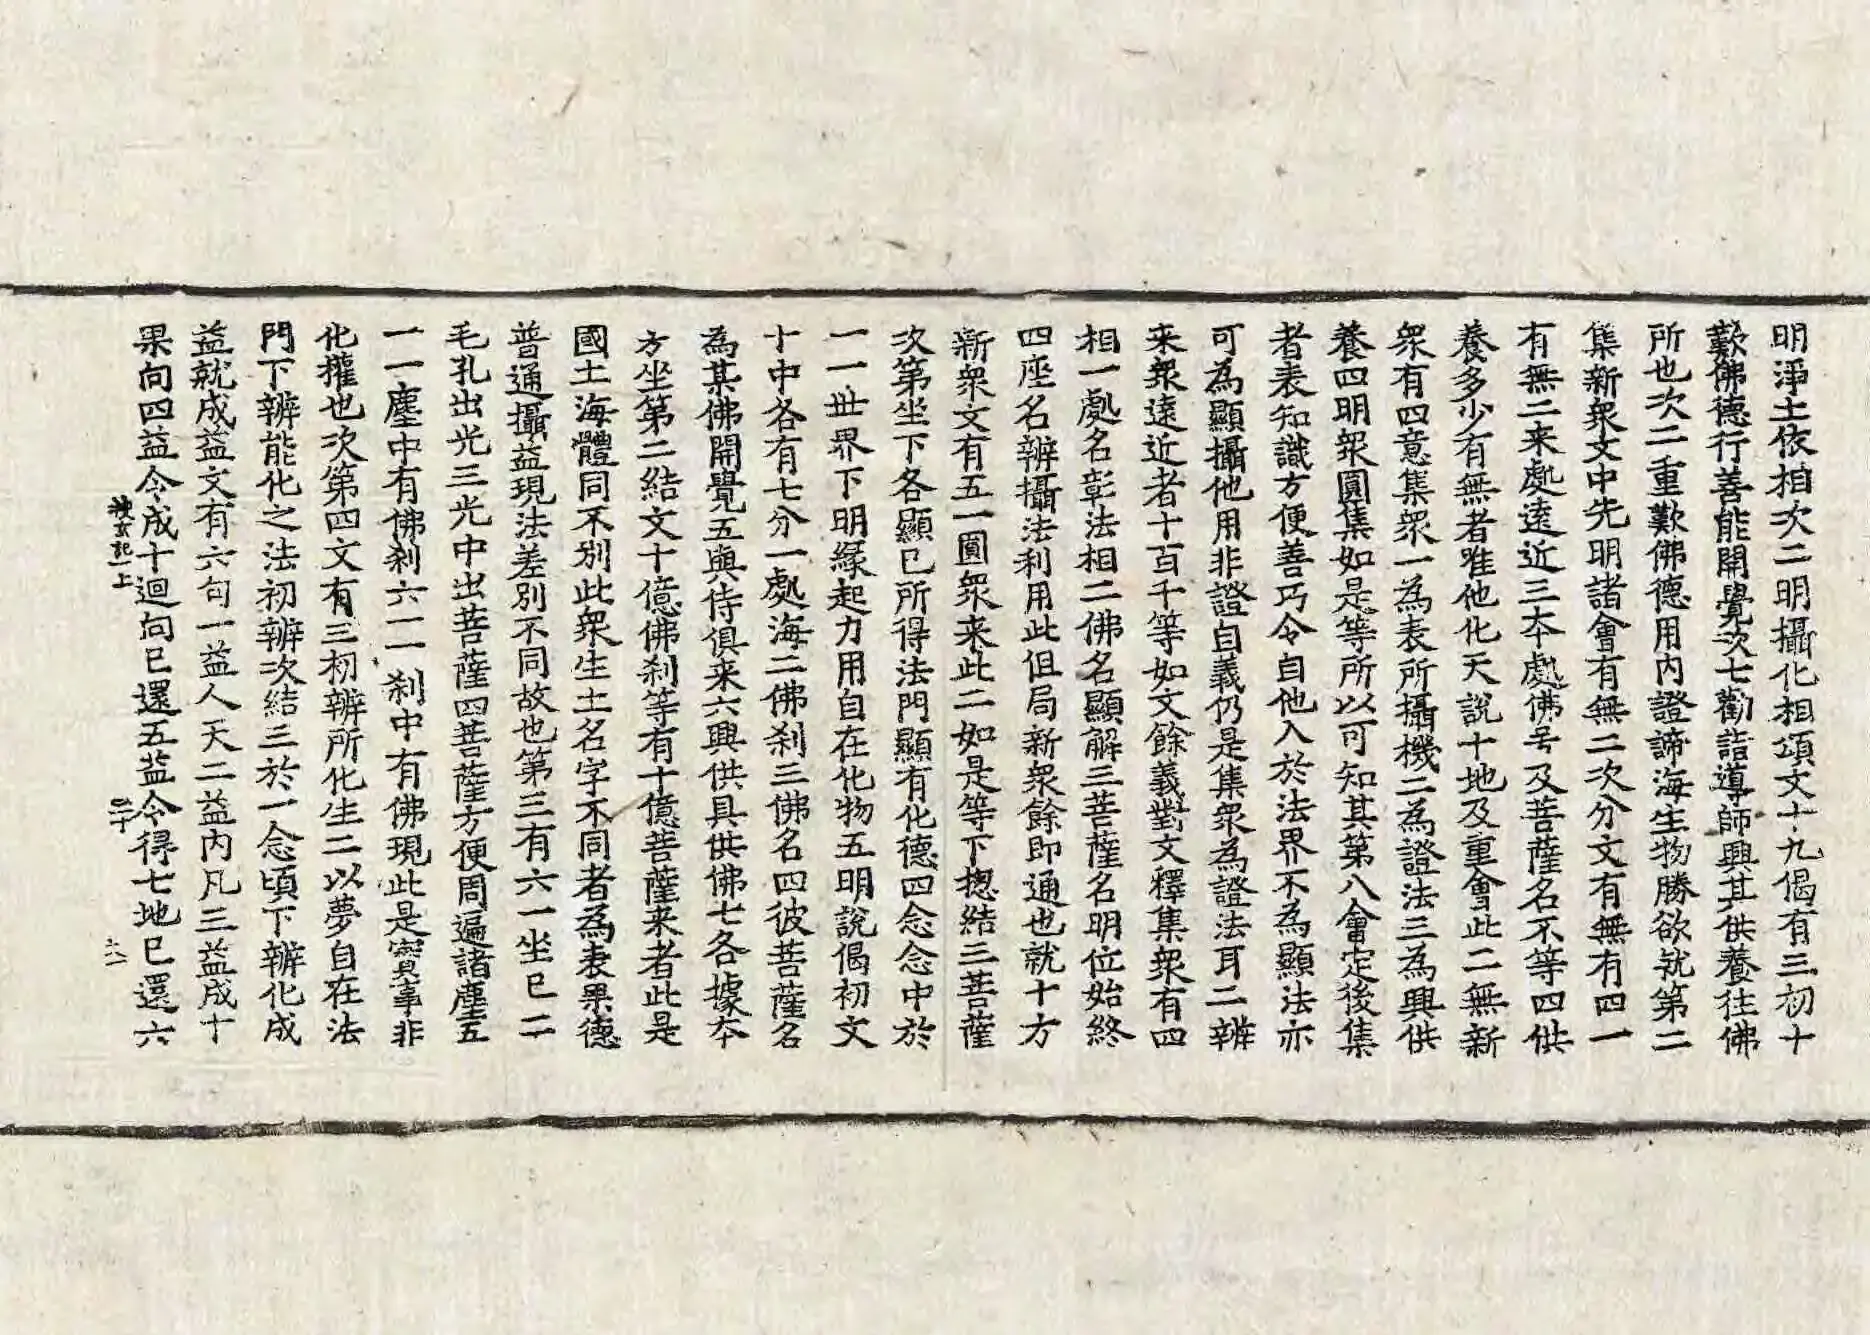 明淨土依相次二明攝化相頌文十九偈有三初十
歎佛德行善能開覺次七勸詣導師興其供養往佛
所也次二重歎佛德用內證諦海生物勝欲就第二
集新衆文中先明諸會有無二次分文有無有四一
有無二来處遠近三本處佛号及菩薩名不等四供
養多少有無者唯他化天說十地及重會此二無新
衆有四意集衆一為表所攝機二為證法三為興供
養四明衆圓集如是等所以可知其第八會定後集
者表知識方便善巧令自他入於法界不為顯法亦
可為顯攝他用非證自義仍是集衆為證法耳二辨
来衆遠近者十百千等如文餘義對文釋集衆有四
相一處名彰法相二佛名顯解三菩薩名明位始終
四座名辨攝法利用此但局新衆餘即通也就十方
新衆文有五一圓衆来此二如是等下揔結三菩薩
次第坐下各顯已所得法門顯有化德四念念中於
一一世界下明緣起力用自在化物五明說偈初文
十中各有七分一處海二佛刹三佛名四彼菩薩名
為其佛開覺五與侍俱来六興供具供佛七各據本
方坐第二結文十億佛刹等有十億菩薩来者此是
國土海體同不別此衆生土名字不同者為表果德
普通攝益現法差別不同故也第三有六一坐已二
毛孔出光三光中出菩薩四菩薩方便周遍諸塵五
一一塵中有佛刹六一一刹中有佛現此是實事非
化攉也次第四文有三初辨所化生二以夢自在法
門下辨能化之法初辨次結三於一念頃下辨化成
益就成益文有六句一益人天二益內凡三益成十
果向四益令成十迴向已還五益令得七地已還六
搜玄記一上
二十